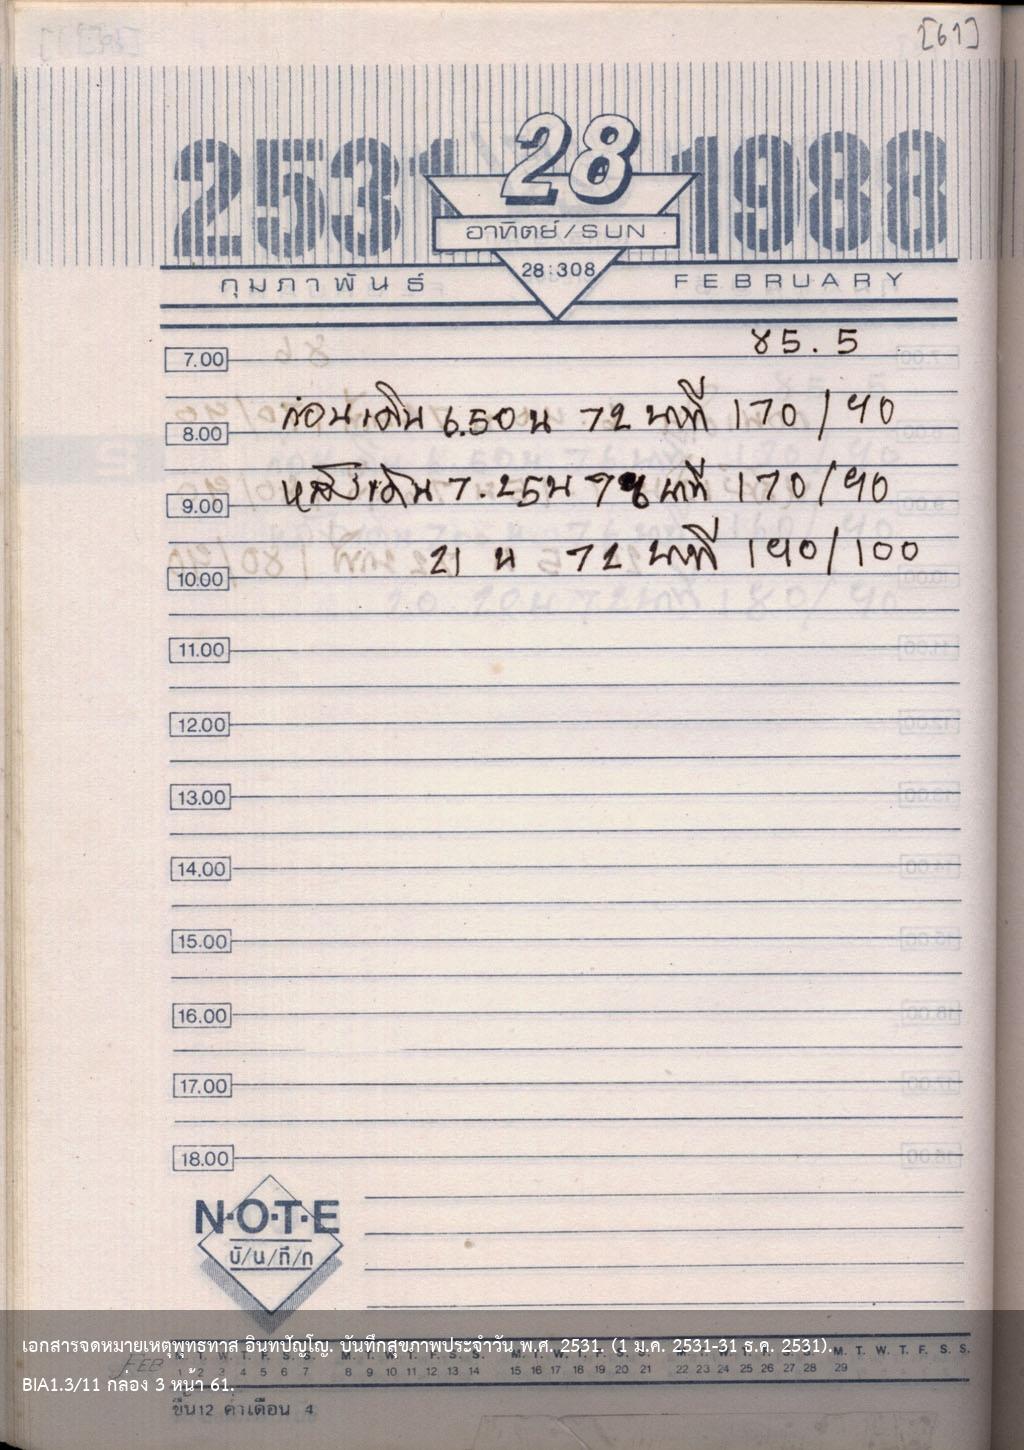 [61]
2531 28 1988
อาทิตย์/SUN
28:308
กุมภาพันธ์ FEBRUARY
85.5
7.00
ก่อนเดิน 6.50 น 72 นาที 170/90
8.00
หลังเดิน 7.25 น นาที 170/90
9.00
21 น 72 นาที 190/100
10.00
11.00
12.00
13.00
14.00
15.00
16.00
17.00
18.00
N·O·T·E
บั/น/ทึ/ก
เอกสารจดหมายเหตุพุทธทาส อินทปัญโญ. บันทึกสุขภาพประจำวัน พ.ศ. 2531. (1 ม.ค. 2531-31 ธ.ค. 2531).
M. T. W. T. F. S. S. M. T. W. T. F. S. S. M. T. W. T. F. S. S. M. T. W. T. F. S. S. M. T. W. T. F. S. S.
FEB 1 2 3 4 5 6 7 8 9 10 11 12 13 14 15 16 17 18 19 20 21 22 23 24 25 26 27 28 29
BIA1.3/11 กล่อง 3 หน้า 61.
ขึ้น 12 ค่ำ เดือน 4